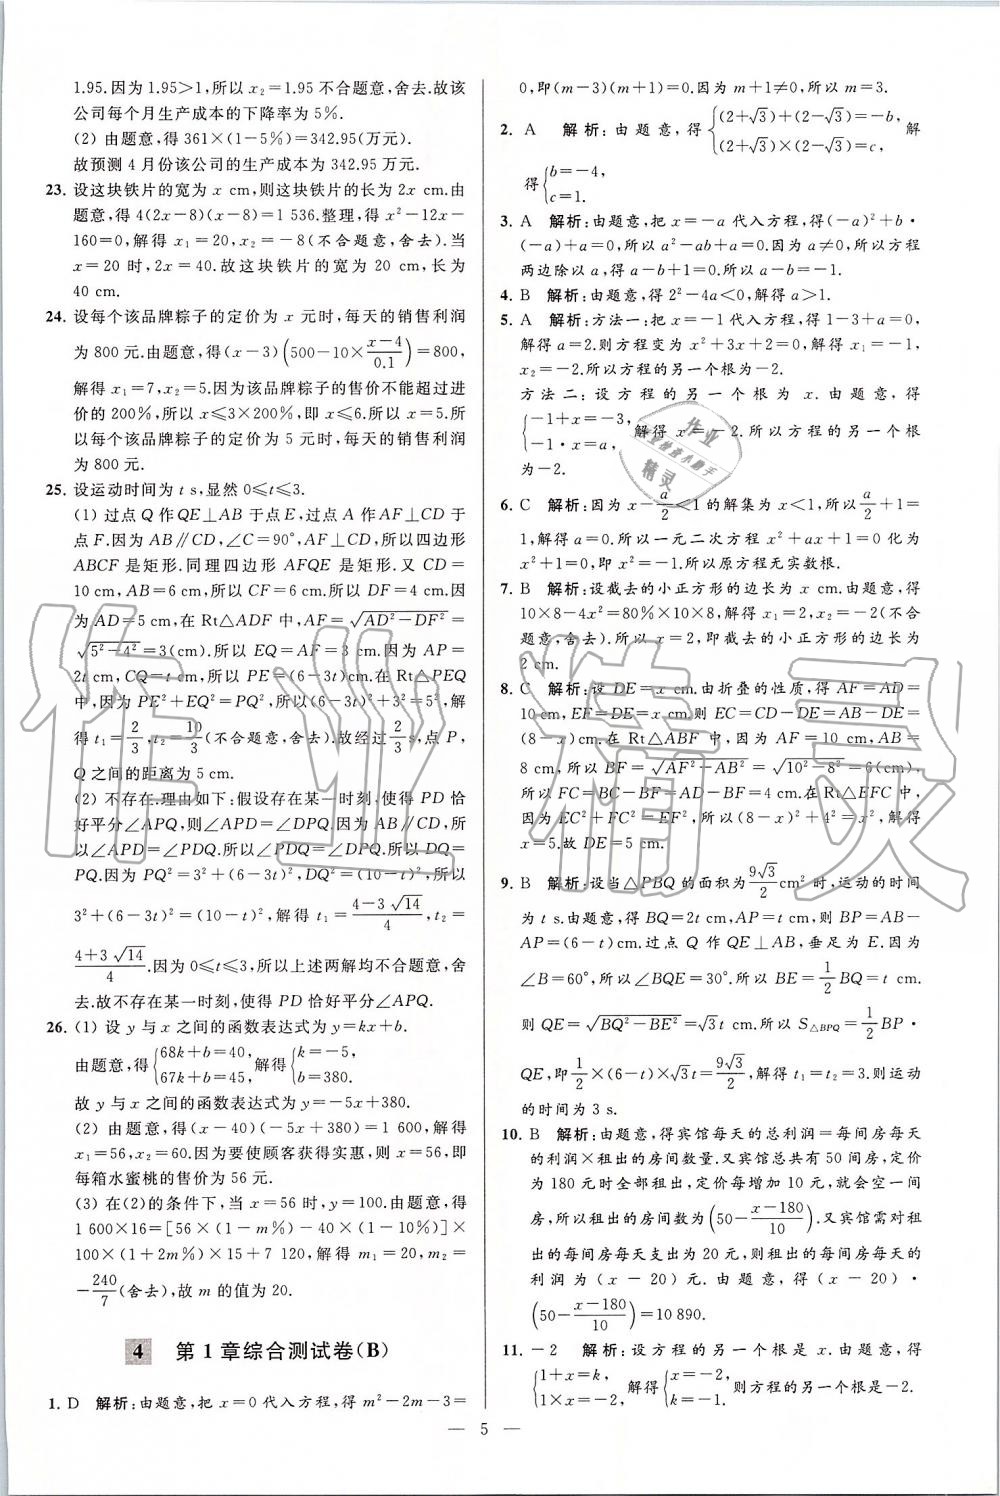 1.95.因为 1.95>1,所以 x₂=1.95 不合题意,舍去.故该
公司每个月生产成本的下降率为 5%.
(2) 由题意,得 361×(1-5%)=342.95(万元).
故预测 4 月份该公司的生产成本为 342.95 万元.
23. 设这块铁片的宽为 x cm,则这块铁片的长为 2x cm.由
题意,得 4(2x-8)(x-8)=1 536.整理,得 x²-12x-
160=0,解得 x₁=20,x₂=-8(不合题意,舍去).当
x=20 时,2x=40.故这块铁片的宽为 20 cm,长为
40 cm.
24. 设每个该品牌粽子的定价为 x 元时,每天的销售利润
为 800 元.由题意,得(x-3)(500-10×(x-4)/0.1)=800,
解得 x₁=7,x₂=5.因为该品牌粽子的售价不能超过进
价的 200%,所以 x≤3×200%,即 x≤6.所以 x=5.所
以每个该品牌粽子的定价为 5 元时,每天的销售利润
为 800 元.
25. 设运动时间为 t s,显然 0≤t≤3.
(1) 过点 Q 作 QE⊥AB 于点 E,过点 A 作 AF⊥CD 于
点 F.因为 AB∥CD,∠C=90°,AF⊥CD,所以四边形
ABCF 是矩形.同理四边形 AFQE 是矩形.又 CD=
10 cm,AB=6 cm,所以 CF=6 cm.所以 DF=4 cm.因
为 AD=5 cm,在 Rt△ADF 中,AF=√(AD²-DF²)=
√(5²-4²)=3(cm).所以 EQ=AF=3 cm.因为 AP=
2t cm,CQ=t cm,所以 PE=(6-3t)cm.在 Rt△PEQ
中,因为 PE²+EQ²=PQ²,所以(6-3t)²+3²=5²,解
得 t₁=2/3,t₂=10/3(不合题意,舍去).故经过 2/3 s,点 P,
Q 之间的距离为 5 cm.
(2) 不存在.理由如下:假设存在某一时刻,使得 PD 恰
好平分∠APQ,则∠APD=∠DPQ.因为 AB∥CD,所
以∠APD=∠PDQ.所以∠DPQ=∠PDQ.所以 DQ=
PQ.因为 PQ²=3²+(6-3t)²,DQ²=(10-t)²,所以
3²+(6-3t)²=(10-t)²,解得 t₁=(4-3√14)/4,t₂=
(4+3√14)/4.因为 0≤t≤3,所以上述两解均不合题意,舍
去.故不存在某一时刻,使得 PD 恰好平分∠APQ.
26. (1) 设 y 与 x 之间的函数表达式为 y=kx+b.
由题意,得{68k+b=40, 67k+b=45, 解得{k=-5, b=380.
故 y 与 x 之间的函数表达式为 y=-5x+380.
(2) 由题意,得(x-40)(-5x+380)=1 600,解得
x₁=56,x₂=60.因为要使顾客获得实惠,所以 x=56,即
每箱水蜜桃的售价为 56 元.
(3) 在(2)的条件下,当 x=56 时,y=100.由题意,得
1 600×16=[56×(1-m%)-40×(1-10%)]×
100×(1+2m%)×15+7 120,解得 m₁=20,m₂=
-240/7(舍去),故 m 的值为 20.
4 第 1 章综合测试卷(B)
1. D 解析:由题意,把 x=0 代入方程,得 m²-2m-3=
0,即(m-3)(m+1)=0.因为 m+1≠0,所以 m=3.
2. A 解析:由题意,得{(2+√3)+(2-√3)=-b, (2+√3)×(2-√3)=c, 解
得{b=-4, c=1.
3. A 解析:由题意,把 x=-a 代入方程,得(-a)²+b·
(-a)+a=0,所以 a²-ab+a=0.因为 a≠0,所以方程
两边除以 a,得 a-b+1=0.所以 a-b=-1.
4. B 解析:由题意,得 2²-4a<0,解得 a>1.
5. A 解析:方法一:把 x=-1 代入方程,得 1-3+a=0,
解得 a=2.则方程变为 x²+3x+2=0.解得 x₁=-1,
x₂=-2.所以方程的另一个根为-2.
方法二:设方程的另一个根为 x.由题意,得
{-1+x=-3, -1·x=a, 解得 x=-2.所以方程的另一个根
为-2.
6. C 解析:因为 x-a/2<1 的解集为 x<1,所以 a/2+1=
1,解得 a=0.所以一元二次方程 x²+ax+1=0 化为
x²+1=0,即 x²=-1.所以原方程无实数根.
7. B 解析:设截去的小正方形的边长为 x cm.由题意,得
10×8-4x²=80%×10×8,解得 x₁=2,x₂=-2(不合
题意,舍去).所以 x=2,即截去的小正方形的边长为
2 cm.
8. C 解析:设 DE=x cm.由折叠的性质,得 AF=AD=
10 cm,EF=DE=x cm.则 EC=CD-DE=AB-DE=
(8-x)cm.在 Rt△ABF 中,因为 AF=10 cm,AB=
8 cm,所以 BF=√(AF²-AB²)=√(10²-8²)=6(cm).
所以 FC=BC-BF=AD-BF=4 cm.在 Rt△EFC 中,
因为 EC²+FC²=EF²,所以(8-x)²+4²=x²,解得
x=5.故 DE=5 cm.
9. B 解析:设当△PBQ 的面积为 9√3/2 cm² 时,运动的时间
为 t s.由题意,得 BQ=2t cm,AP=t cm,则 BP=AB-
AP=(6-t)cm.过点 Q 作 QE⊥AB,垂足为 E.因为
∠B=60°,所以∠BQE=30°.所以 BE=1/2BQ=t cm,
则 QE=√(BQ²-BE²)=√3t cm.所以 S△BPQ=1/2BP·
QE,即 1/2×(6-t)×√3t=9√3/2,解得 t₁=t₂=3.则运动
的时间为 3 s.
10. B 解析:由题意,得宾馆每天的总利润=每间房每天
的利润×租出的房间数量.又宾馆总共有 50 间房,定价
为 180 元时全部租出,定价每增加 10 元,就会空一间
房,所以租出的房间数为(50-(x-180)/10).又宾馆需对租
出的每间房每天支出为 20 元,则租出的每间房每天的
利润为(x-20)元.由题意,得(x-20)·
(50-(x-180)/10)=10 890.
11. -2 解析:设方程的另一个根为 x.由题意,得
{1+x=k, 1×x=-2, 解得{x=-2, k=-1. 则方程的另一个根是-2.
— 5 —
作业精灵
作业
精灵